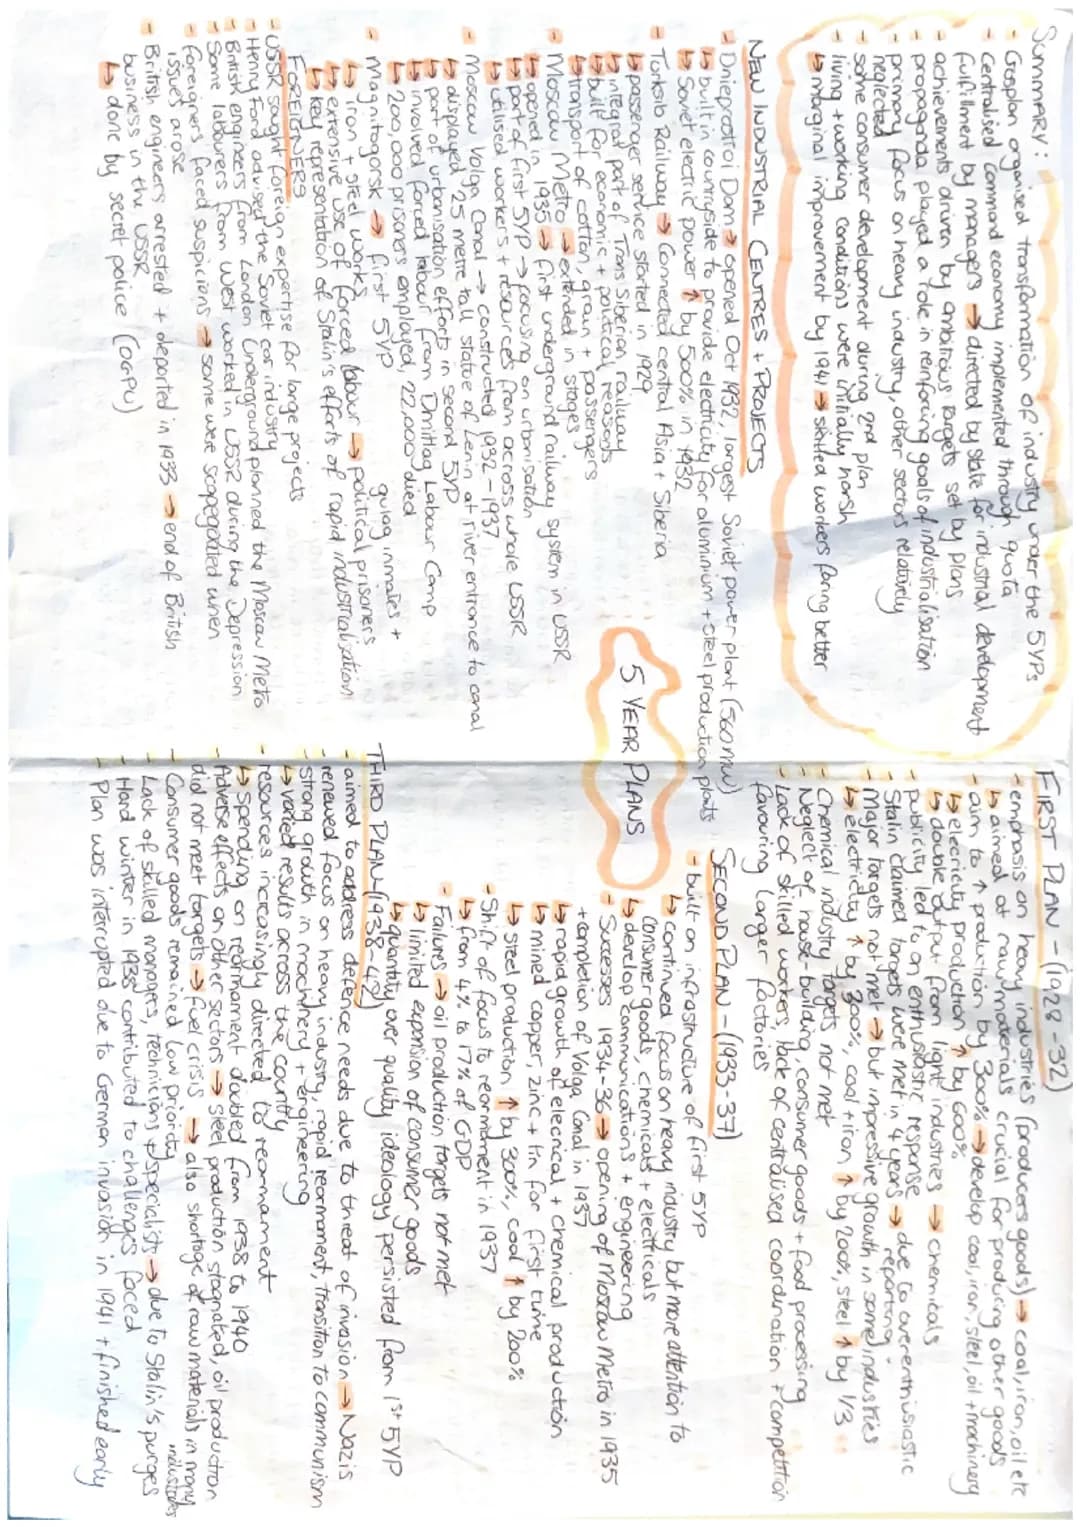 SUMMARY:
- Gosplan organised transformation of industry under the 5YPs
- Centralised command economy implemented through quota
fulfillment by managers → directed by state for industrial development
- achievements driven by ambitious targets set by plans
- propaganda played a role in reinforcing goals of industrialisation
- primary focus on heavy industry, other sectors relatively
neglected
- some consumer development during 2nd plan
- living + working conditions were initially harsh
↳ marginal improvement by 1941 → skilled workers faring better
NEW INDUSTRIAL CENTRES + PROJECTS
- Dnieprostroi Dam → opened Oct 1932, largest Soviet power plant (560mw)
↳ built in countryside to provide electricity for aluminium + steel production plants
↳ Soviet electric power ↑ by 500% in 1932
- Turksib Railway → Connected central Asia + Siberia
↳ passenger service started in 1929
↳ integral part of Trans Siberian railway
↳ built for economic + political reasons
↳ transport of cotton, grain + passengers
- Moscow Metro → extended in stages
↳ opened in 1935 → first underground railway system in USSR
↳ part of first 5YP → focusing on urbanisation
↳ utilised workers + resources from across whole USSR
- Moscow Volga Canal → constructed 1932-1937
↳ displayed 25 metre tall statue of Lenin at river entrance to canal
↳ part of urbanisation efforts in second 5YP
↳ involved forced labour from Dmitlag Labour Camp
↳ 200,000 prisoners employed, 22,000 died
- Magnitogorsk → first 5YP
↳ iron + steel works
↳ extensive use of forced labour → political prisoners
gulag inmates +
↳ key representation of Stalin's efforts of rapid industrialisation
FOREIGNERS
- USSR sought foreign expertise for large projects
- Henry Ford advised the Soviet car industry
- British engineers from London Underground planned the Moscow Metro
- Some labourers from West worked in USSR during the Depression
- Foreigners faced suspicions → some were scapegoated when
issues arose
- British engineers arrested + deported in 1933 → end of British
business in the USSR
↳ done by secret police (OGPU)
5 YEAR PLANS
FIRST PLAN - (1928-32)
- emphasis on heavy industries (producers goods) → coal, iron, oil etc
↳ aimed at raw materials crucial for producing other goods
- aim to ↑ production by 300% → develop coal, iron, steel, oil + machinery
↳ electricity production ↑ by 600%
↳ double output from light industries → chemicals
- publicity led to an enthusiastic response
- Stalin claimed targets were met in 4 years → due to overenthusiastic
reporting
- Major targets not met → but impressive growth in some industries
↳ electricity ↑ by 300%, coal + iron ↑ by 200%, steel ↑ by 1/3
- Chemical industry targets not met
- Neglect of house-building, consumer goods + food processing
- Lack of skilled workers, lack of centralised coordination + competition
favouring larger factories
SECOND PLAN - (1933-37)
- built on infrastructure of first 5YP
↳ continued focus on heavy industry but more attention to
consumer goods, chemicals + electricals
↳ develop communications + engineering
- Successes 1934-36 → opening of Moscow Metro in 1935
+ completion of Volga Canal in 1937
↳ rapid growth of electrical + chemical production
↳ mined copper, zinc + tin for first time
↳ steel production ↑ by 300%, coal ↑ by 200%
- Shift of focus to rearmament in 1937
↳ from 4% to 17% of GDP
- Failures → oil production targets not met
↳ limited expansion of consumer goods
↳ quantity over quality ideology persisted from 1st 5YP
THIRD PLAN - (1938-42)
- aimed to address defence needs due to threat of invasion → Nazis
- renewed focus on heavy industry, rapid rearmament, transition to communism
- strong growth in machinery + engineering
↳ varied results across the country
- resources increasingly directed to rearmament
↳ spending on rearmament doubled from 1938 to 1940
- Adverse effects on other sectors → steel production stagnated, oil production
did not meet targets → fuel crisis → also shortage of raw materials in many
industries
- Consumer goods remained low priority
- Lack of skilled managers, technicians + specialists → due to Stalin's purges
- Hard winter in 1938 contributed to challenges faced
- Plan was interrupted due to German invasion in 1941 + finished early